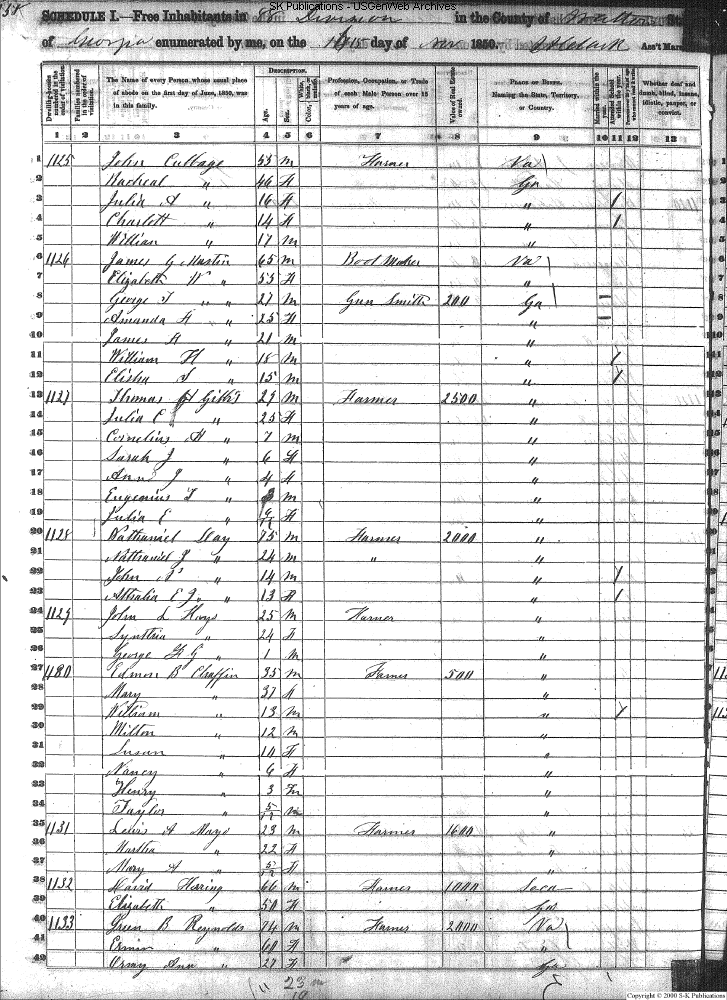 SK Publications - USGenWeb Archives
SCHEDULE I.—Free Inhabitants in Division in the County of Walton State
of Georgia enumerated by me, on the 15 day of Nov 1850. Clark Ass't Mars
Dwelling-houses numbered in the order of visitation. Families numbered in the order of visitation. The Name of every Person whose usual place of abode on the first day of June, 1850, was in this family. DESCRIPTION. Age. Sex. Color, Profession, Occupation, or Trade of each Male Person over 15 years of age. Value of Real Estate owned. PLACE OF BIRTH. Naming the State, Territory, or Country. Married within the year. Attended School within the year. Whether deaf and dumb, blind, insane, idiotic, pauper, or convict.
1 2 3 4 5 6 7 8 9 10 11 12 13
1 1125 John Cubbage 53 m Farmer Va
2 " 46 F Ga
3 Julia A " 16 F " /
4 Charlott " 14 F " /
5 William " 17 m "
6 1126 James G Martin 65 m Boot Maker Va
7 Elizabeth W " 55 F "
8 George T " " 27 m Gun Smith 200 Ga
9 Amanda H " 25 F "
10 James H " 21 m "
11 William H " 18 m " /
12 Elisha T " 15 m " /
13 1127 Thomas 29 m Farmer 2500 "
14 Julia E " 25 F "
15 Cornelius H " 7 m "
16 Sarah J " 6 F "
17 Ann J " 4 F "
18 Eugenius T " 3 m "
19 Julia E " F "
20 1128 Nathaniel Day 75 m Farmer 2000 "
21 Nathaniel J " 24 m " "
22 John " 14 m " /
23 " 13 F " /
24 1129 John L Hays 25 m Farmer "
25 Synthia " 24 F "
26 George " 1 m "
27 1130 Edmon B Chaffin 35 m Farmer 500 "
28 Mary " 37 F "
29 William " 13 m " /
30 Milton " 12 m "
31 Susan " 10 F "
32 Nancy " 6 F "
33 Henry " 3 m "
34 Taylor " 5/12 m "
35 1131 Lewis A Mayo 23 m Farmer 1600 "
36 Martha " 22 F "
37 Mary A " 5/12 F "
38 1132 David Herring 66 m Farmer 1000
39 Elizabeth " 50 F Ga
40 1133 Green B Reynolds 74 m Farmer 2000 Va
41 " 60 F "
42 Ann " 27 F " Ga
23 m
19
Copyright © 2000 S-K Publications